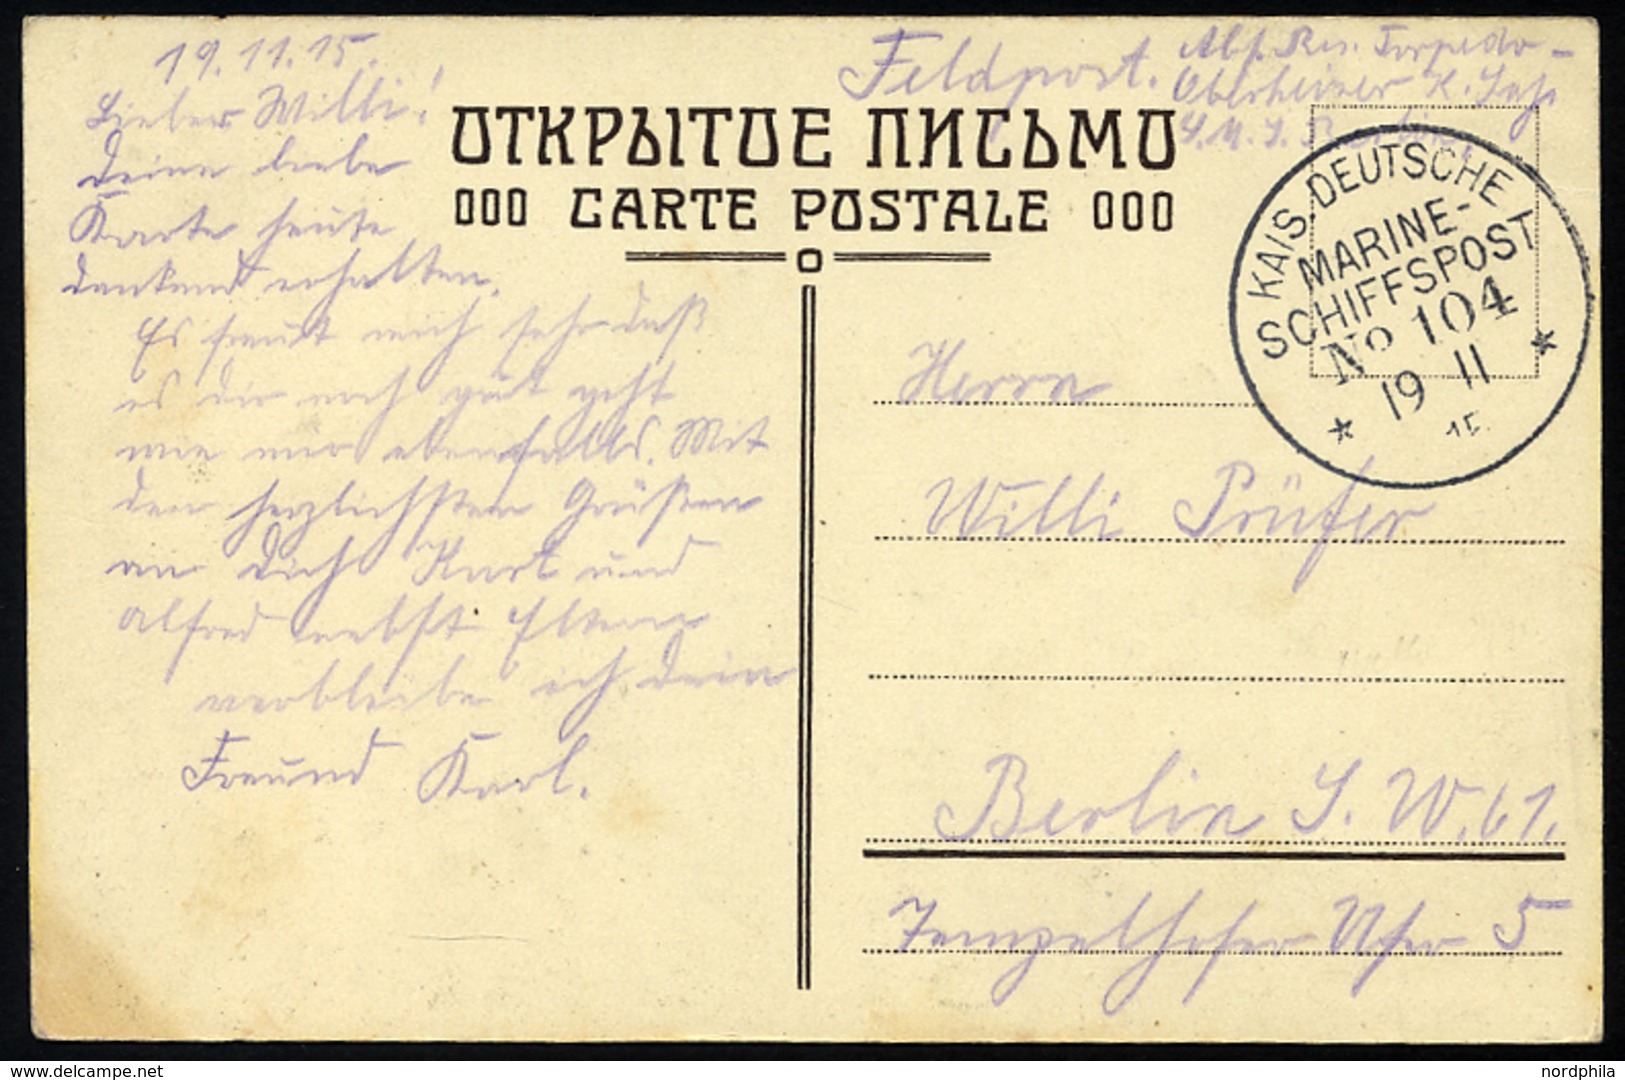 19.11.15.
Lieber Willi!
Deine liebe
Karte heute
dankend erhalten.
Es freut mich sehr daß
es dir noch gut geht
wie mir ebenfalls. Mit
den herzlichsten Grüßen
an Dich Kurt und
Alfred nebst Eltern
verbleibe ich Dein
Freund Karl.
Feldpost. Abs. Res. Torpedo-
Oberheizer K.
S.M.S.
ОТКРЫТОЕ ПИСЬМО
CARTE POSTALE
KAIS. DEUTSCHE
MARINE-
SCHIFFSPOST
No 104
19 11
15.
Herrn
Willi Prüfer
Berlin S.W.61.
Tempelhofer Ufer 5
delcampe.net
nordphila